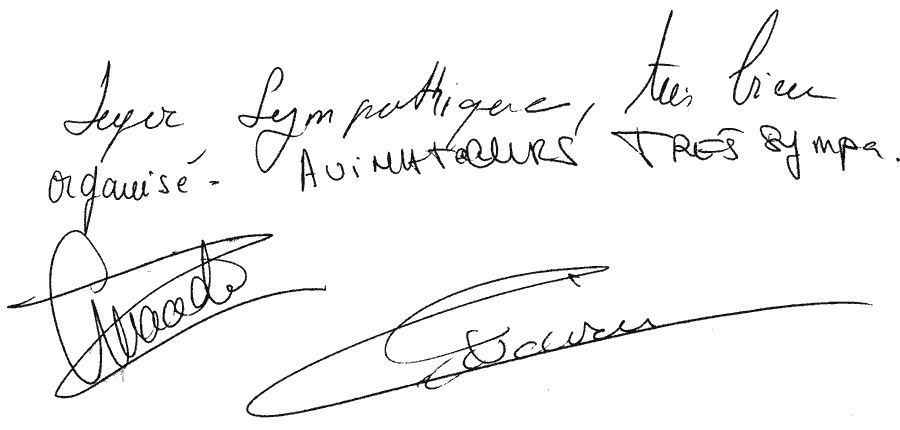 Super Sympathique, très bien
organisé. ANIMATEURS TRÈS Sympa.